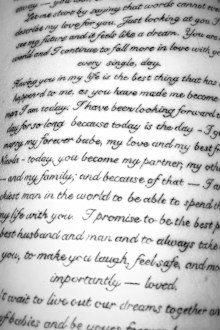 away — you
Let me start by saying that words cannot
describe my love for you. Just looking at you
see my future and it feels like a dream. You are
world and I continue to fall more in love with
every single, day.
Having you in my life is the best thing that has
happened to me, as you have made me become
man I am today; I have been looking forward
day for so long because today is the day - I get
marry my forever babe, my love and my best
today, you become my partner, my other
- and my family; and because of that — I
luckiest man in the world to be able to spend the
my life with you. I promise to be the best
best husband and man and to always take
you, to make you laugh, feel safe, and
importantly — loved.
wait to live out our dreams together as
of babies and be your forever